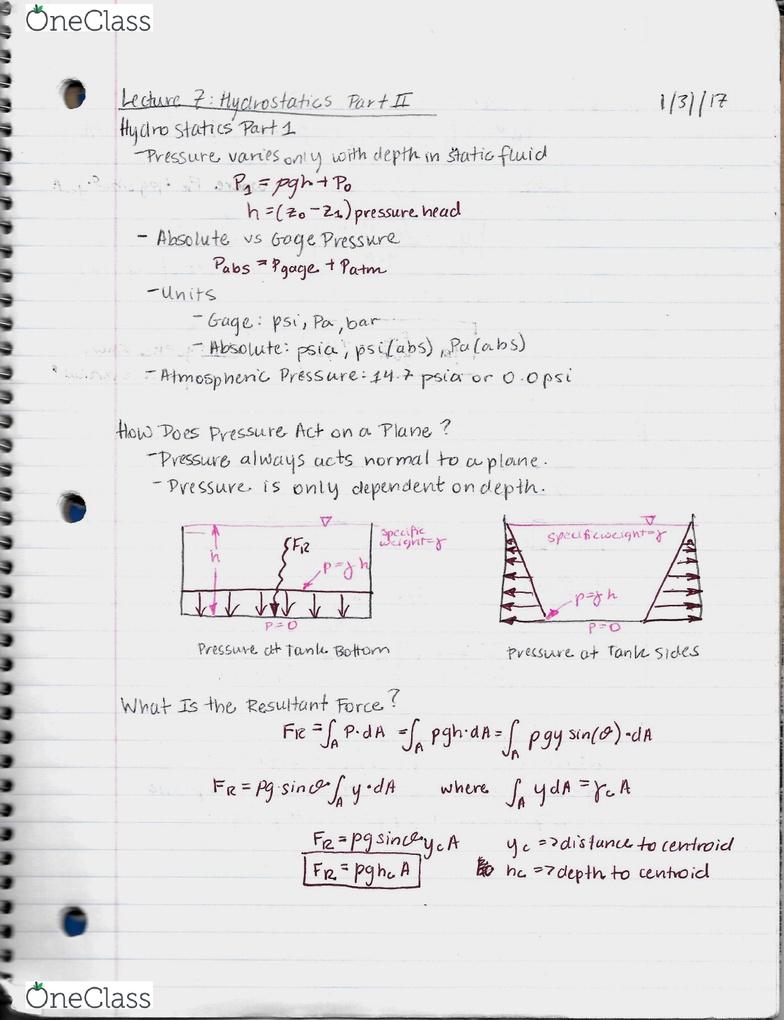 OneClass
Lecture 7: Hydrostatics Part II 1/31/17
Hydrostatics Part 1
- Pressure varies only with depth in static fluid
P₁ = ρgh + P₀
h = (z₀ - z₁) pressure head
- Absolute vs Gage Pressure
Pabs = Pgage + Patm
- Units
- Gage: psi, Pa, bar
- Absolute: psia, psi(abs), Pa(abs)
- Atmospheric Pressure: 14.7 psia or 0.0psi
How Does Pressure Act on a Plane?
- Pressure always acts normal to a plane.
- Pressure is only dependent on depth.
specific
weight=γ
h
FR
p=γh
p=0
Pressure at Tank Bottom
specific weight=γ
p=γh
p=0
Pressure at Tank Sides
What Is the Resultant Force?
FR = ∫A P·dA = ∫A ρgh·dA = ∫A ρgy sin(θ)·dA
FR = ρg·sinθ ∫A y·dA where ∫A y dA = yc A
FR = ρg sinθ yc A yc => distance to centroid
FR = ρghc A hc => depth to centroid
OneClass